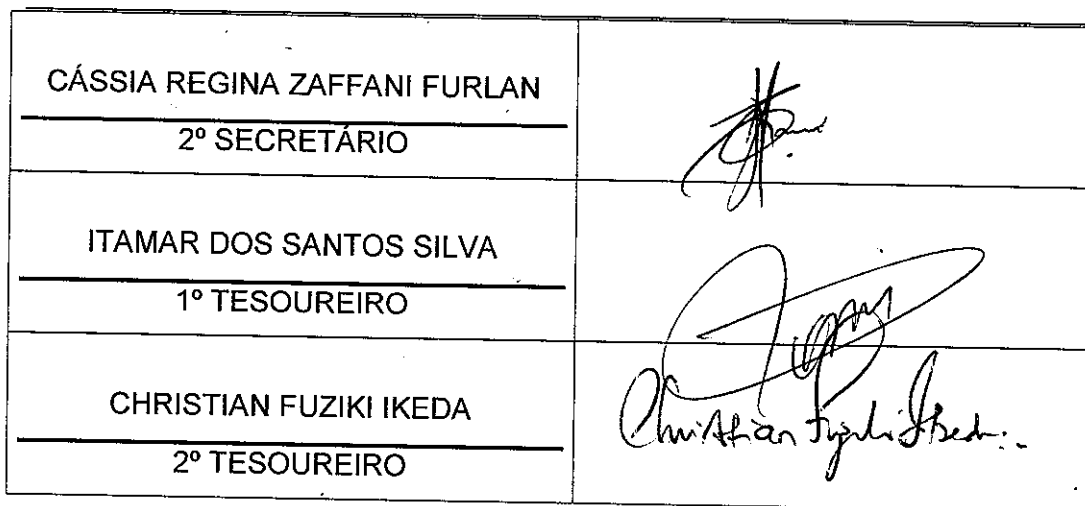 CÁSSIA REGINA ZAFFANI FURLAN
2º SECRETÁRIO
ITAMAR DOS SANTOS SILVA
1º TESOUREIRO
CHRISTIAN FUZIKI IKEDA
Christian Fuziki Ikeda
2º TESOUREIRO